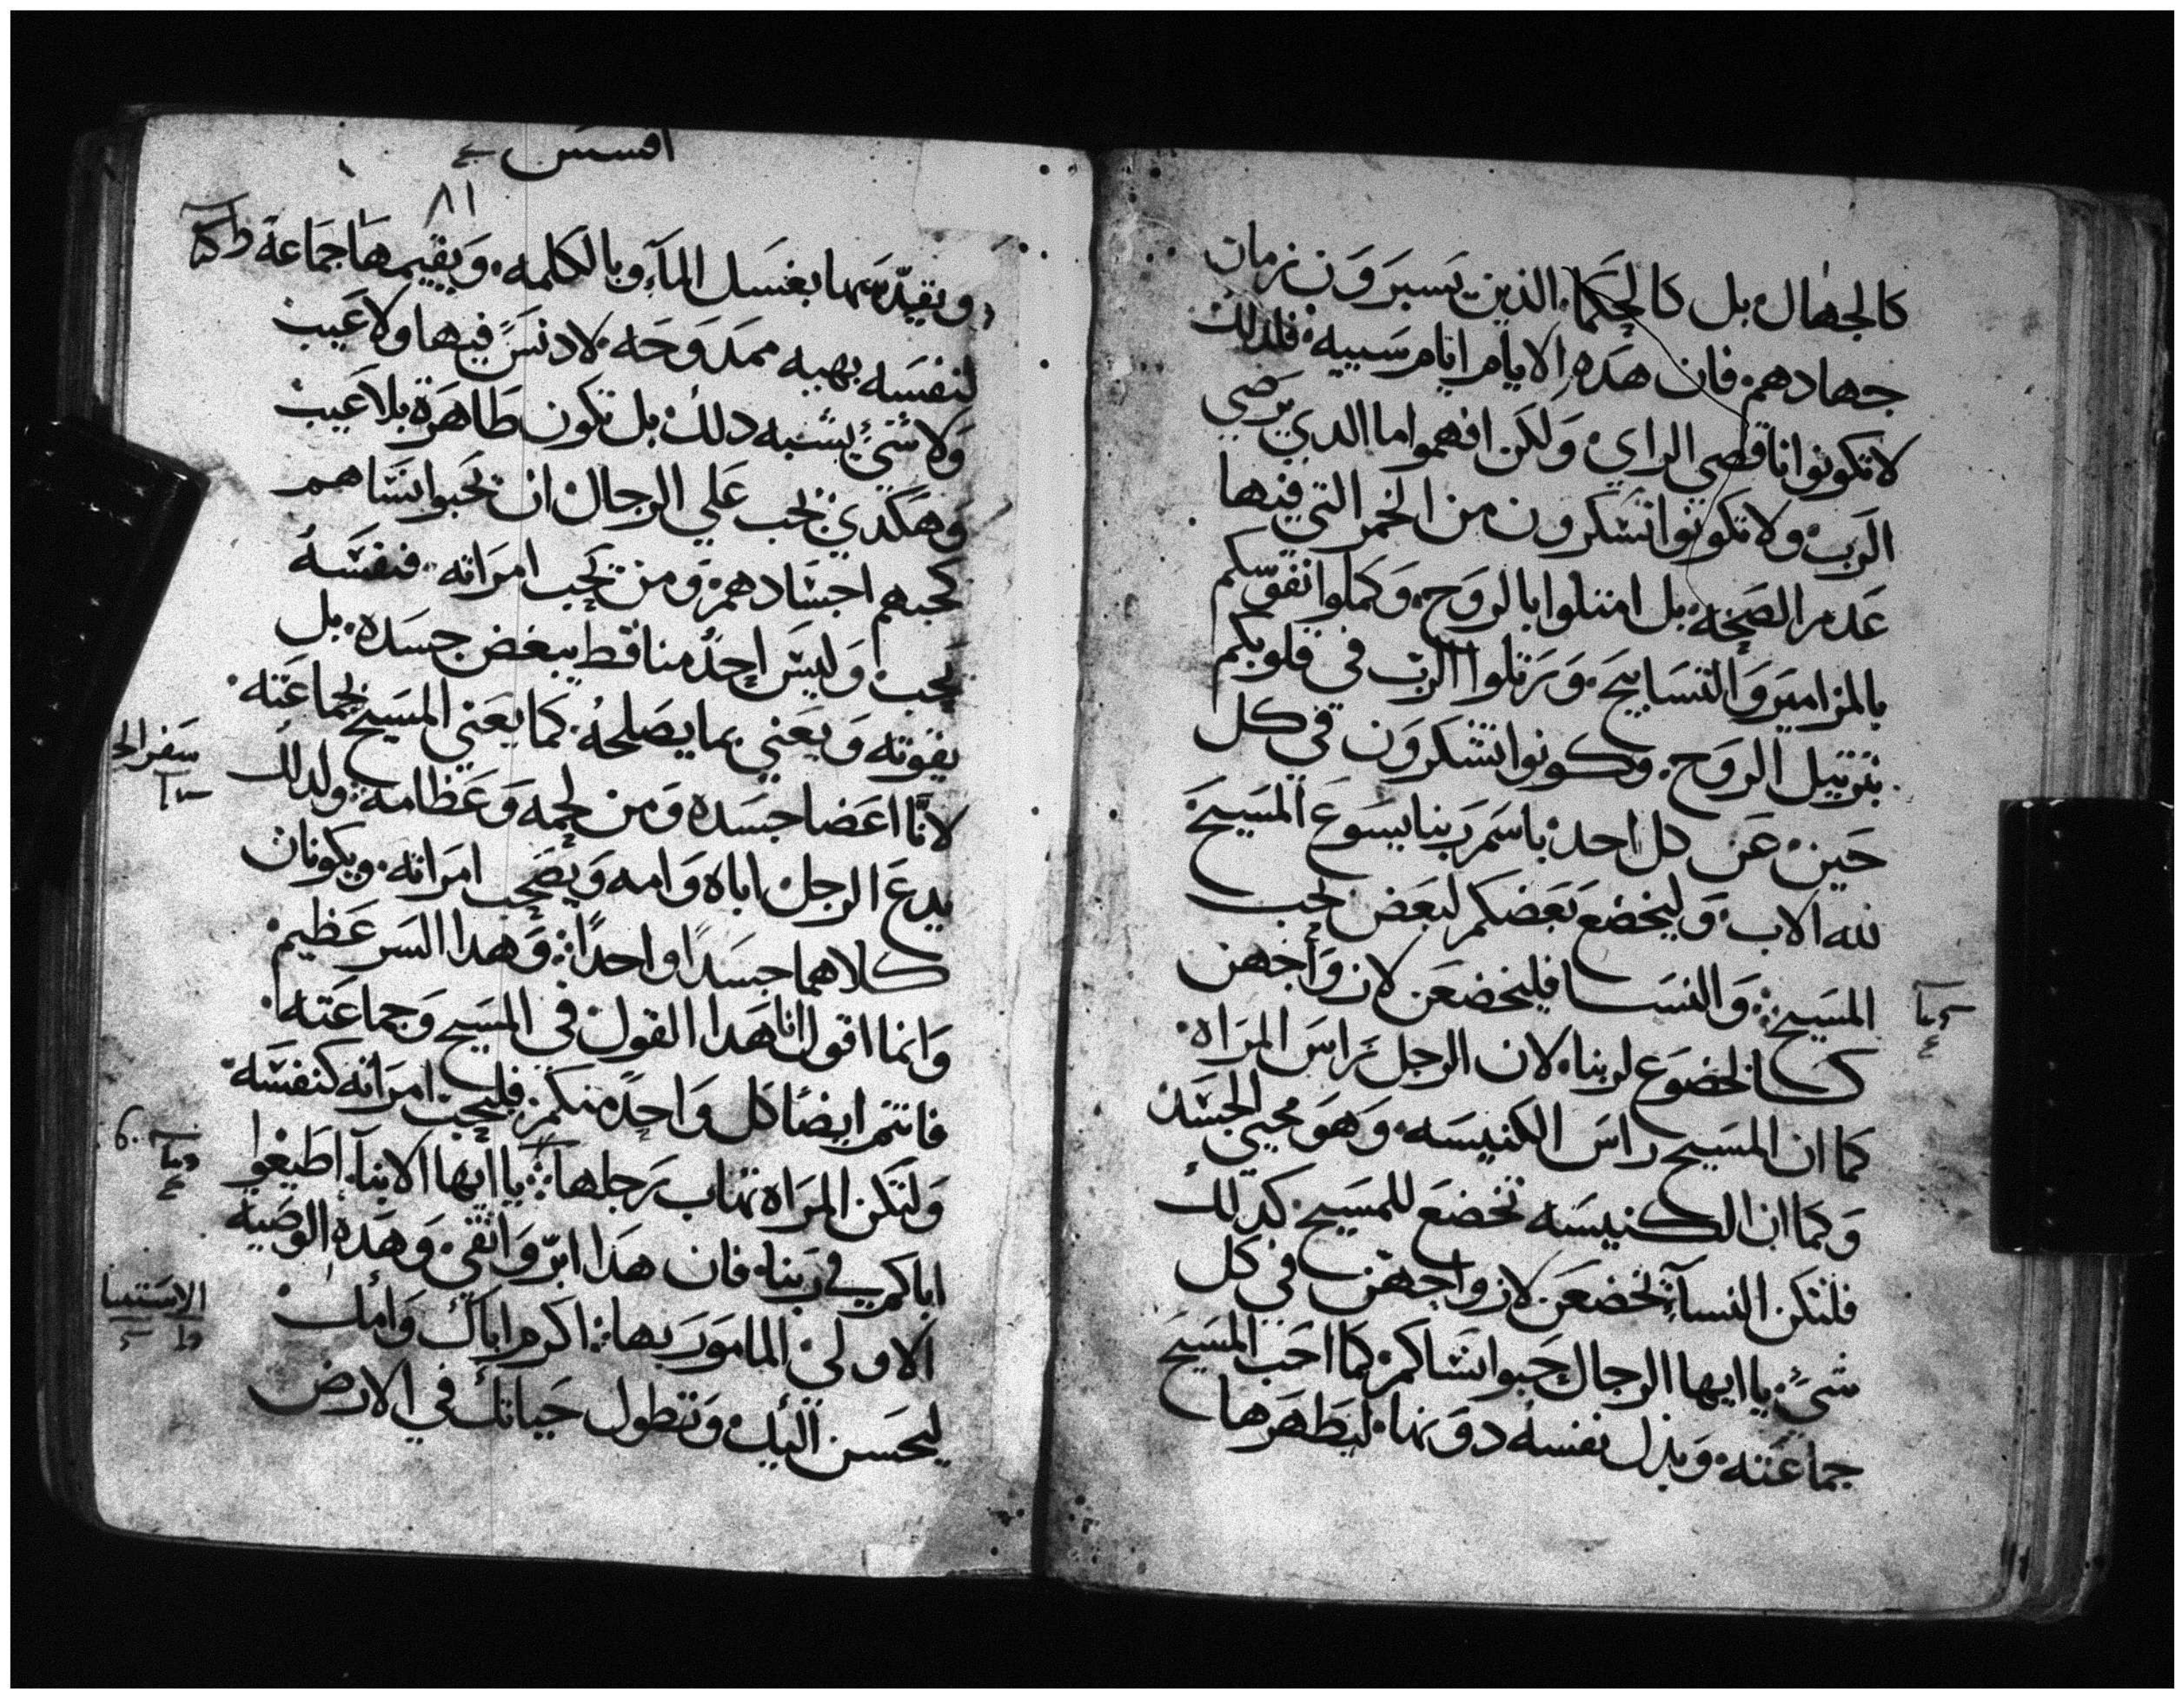 كالجهال بل كالحكما. الذين يسبرون زمان
جهادهم. فان هده الايام ايام سييه. فلدلك
لا تكونوا ناقصي الراي. ولكن افهموا ما الدي يرضي
الرب. ولا تكونوا تسكرون من الخمر التي فيها
عدم الصحه. بل امتلوا بالروح. وكملوا نفوسكم
بالمزامير والتسابيح. ورتلوا الرب في قلوبكم
بترتيل الروح. وكونوا تشكرون في كل
حين. عن كل احد. باسم ربنا يسوع المسيح
لله الاب. وليخضع بعضكم لبعض بحب
المسيح: والنسا فليخضعن لازواجهن
كالخضوع لربنا. لان الرجل راس المراه.
كما ان المسيح راس الكنيسه. وهو محيي الجسد.
وكما ان الكنيسه تخضع للمسيح. كدلك
فلتكن النسآ تخضعن لازواجهن في كل
شي. يا ايها الرجال حبوا نساكم. كما احب المسيح
جماعته. وبدل نفسه دونها. ليطهرها
افسس
٨١
ويقدسها بغسل المآ وبالكلمه. ويقيمها جماعة
لنفسه بهيه ممدوحه. لا دنس فيها ولا عيب
ولا شي يشبه دلك. بل تكون طاهرة بلا عيب
وهكدي يجب علي الرجال ان يحبوا نساهم
كحبهم اجسادهم. ومن يحب امراته. فنفسه
يحب. وليس احد منا قط يبغض جسده. بل
يقوته ويعني بما يصلحه. كما يعني المسيح بجماعته.
لانا اعضا جسده ومن لحمه وعظامه. ولدلك
يدع الرجل اباه وامه ويصحب امراته. ويكونان
كلاهما جسدا واحدا: وهدا السر عظيم.
وانما اقول انا هدا القول في المسيح وجماعته.
فانتم ايضا كل واحد منكم. فليحب امراته كنفسه.
ولتكن المراه تهاب رجلها: يا ايها الابنآ اطيعوا
اباكم في ربنا. فان هدا ابر واتقي. وهده الوصيه
الاولي المامور بها: اكرم اباك وامك
ليحسن اليك. وتطول حياتك في الارض